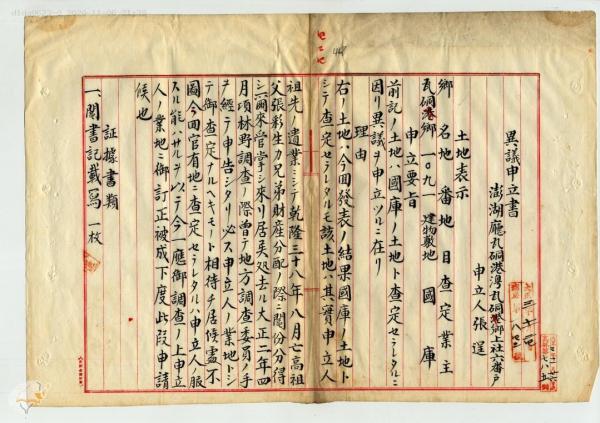 異議申立書
澎湖廳瓦硐港澳瓦硐港鄉上社六番戶
申立人 張逞
土地表示
鄉名 地番 地目 查定業主
瓦硐港鄉 一〇九一 建物敷地 國庫
申立要旨
前記ノ土地ハ國庫ノ土地ト查定セラレタルニ
因リ異議ヲ申立ツルニ在リ
理由
右ノ土地ハ今回發表ノ結果國庫ノ土地ト
シテ查定セラレタルモ該土地ハ其實申立人
祖先ノ遺業ニシテ乾隆三十八年八月亡高祖
父張彩生力兄弟財產分配ノ際ニ鬮份分得
シ爾來管掌シ來リ居矣処去ル大正二年四
月頃林野調查ノ際曾テ地方調查委員ノ手
ヲ經テ申告シタリ必ス申立人ノ業地トシ
テ御查定アルヘキモノト相待チ居候處不
圖今回官有地ニ查定セラレタルハ申立人ノ服
スル能ハサル所以テ今一應御調查ノ上申立
人ノ業地ニ御訂正被成下度此段申請
候也
證據書類
一、鬮書記載寫 一枚